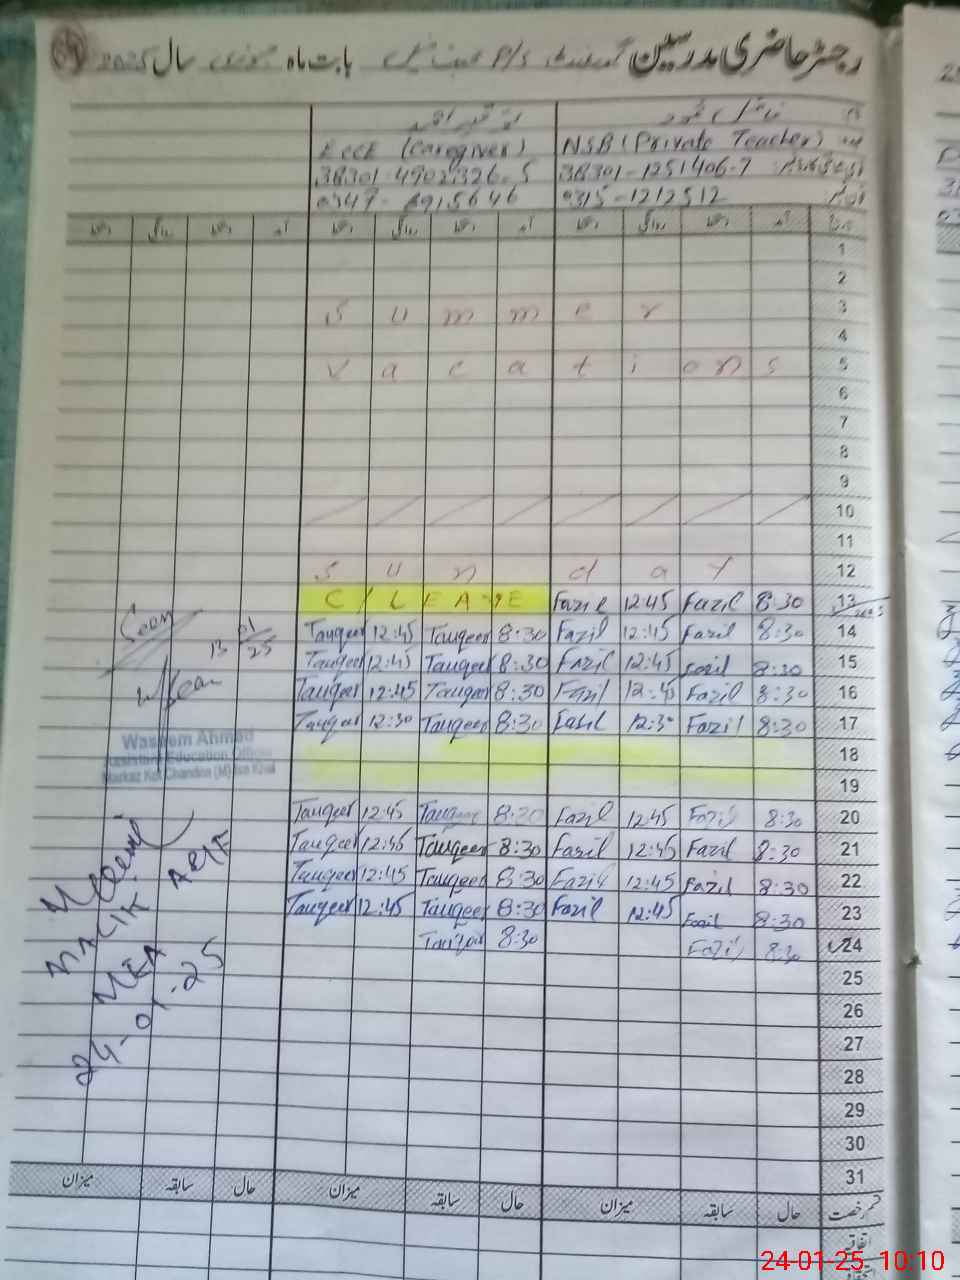 رجسٹر حاضری مدرسین گورنمنٹ P/S بابت ماہ جنوری سال 2025
نام
ECCE (Caregiver) NSB (Private Teacher)
38301-4902326-5 38301-1251406-7
0347-8915646 0315-1212512
آمد دستخط روانگی دستخط آمد دستخط روانگی دستخط آمد دستخط روانگی دستخط
1
2
S u m m e r 3
4
V a c a t i o n s 5
6
7
8
9
10
11
S u n d a y 12
C / L E A V E Fazil 12:45 Fazil 8:30 13
Tauqeer 12:45 Tauqeer 8:30 Fazil 12:45 Fazil 8:30 14
Tauqeer 12:45 Tauqeer 8:30 Fazil 12:45 Fazil 8:30 15
Tauqeer 12:45 Tauqeer 8:30 Fazil 12:45 Fazil 8:30 16
Tauqeer 12:30 Tauqeer 8:30 Fazil 12:30 Fazil 8:30 17
18
19
Tauqeer 12:45 Tauqeer 8:30 Fazil 12:45 Fazil 8:30 20
Tauqeer 12:45 Tauqeer 8:30 Fazil 12:45 Fazil 8:30 21
Tauqeer 12:45 Tauqeer 8:30 Fazil 12:45 Fazil 8:30 22
Tauqeer 12:45 Tauqeer 8:30 Fazil 12:45 Fazil 8:30 23
Tauqeer 8:30 Fazil 8:30 24
25
26
27
28
29
30
31
قسم رخصت حال سابقہ میزان حال سابقہ میزان حال سابقہ میزان
اتفاقیہ
Seen
13 01/25
Waseem Ahmad
Assistant Education Officer
MEA
24-01-25
24-01-25 10:10